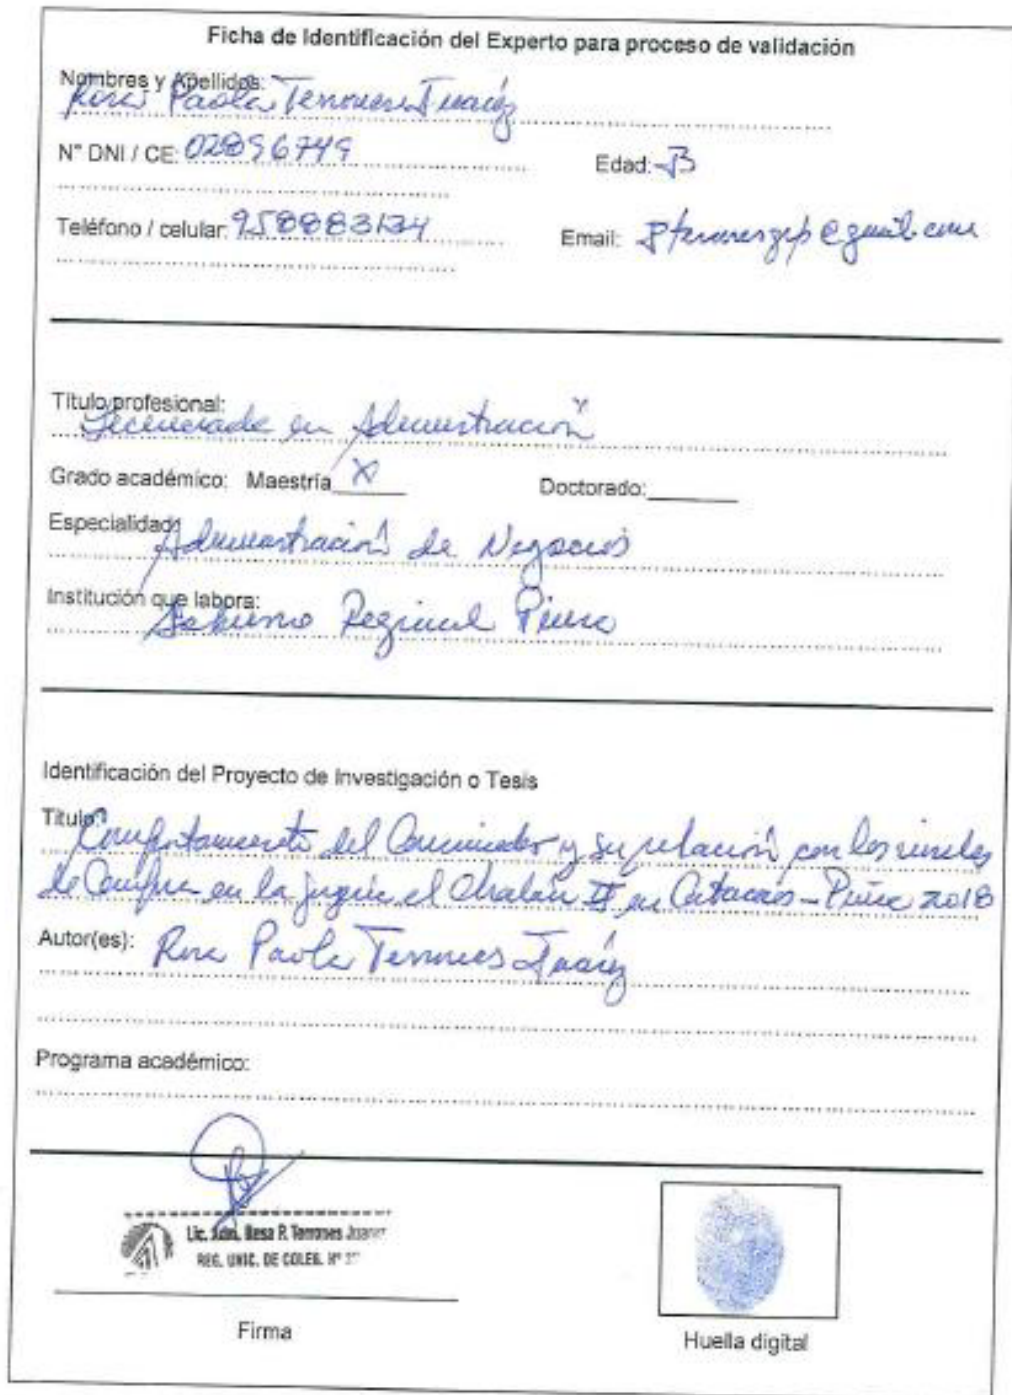 Ficha de Identificación del Experto para proceso de validación
Nombres y Apellidos:
Rosa Paola Terrones Juárez
N° DNI / CE: 02896749 Edad:
Teléfono / celular: 958883134 Email: @gmail.com
Título profesional:
Licenciada en Administración
Grado académico: Maestría X Doctorado:
Especialidad:
Administración de Negocios
Institución que labora:
Gobierno Regional Piura
Identificación del Proyecto de Investigación o Tesis
Título:
Comportamiento del Consumidor y su relación con los niveles
de Compra en la el Chalán II en Catacaos - Piura 2018
Autor(es): Rosa Paola Terrones Juárez
Programa académico:
Lic. Adm. Rosa P. Terrones Juarez
REG. UNIC. DE COLEG. N°
Firma
Huella digital